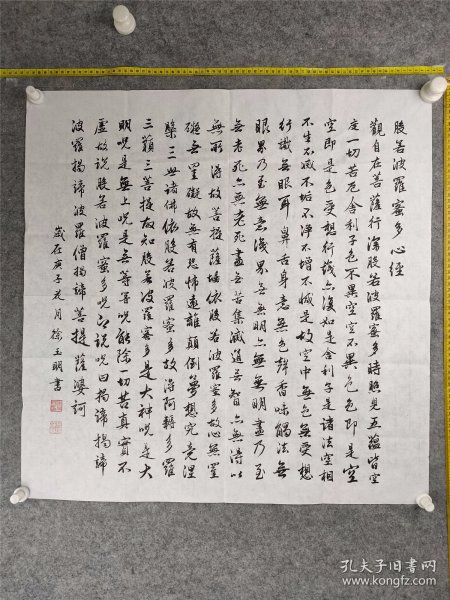 般若波羅蜜多心經
觀自在菩薩行深般若波羅蜜多時照見五蘊皆空
度一切苦厄舍利子色不異空空不異色色即是空
空即是色受想行識亦復如是舍利子是諸法空相
不生不滅不垢不淨不增不減是故空中無色無受想
行識無眼耳鼻舌身意無色聲香味觸法無
眼界乃至無意識界無無明亦無無明盡乃至
無老死亦無老死盡無苦集滅道無智亦無得以
無所得故菩提薩埵依般若波羅蜜多故心無罣
礙無罣礙故無有恐怖遠離顛倒夢想究竟涅
槃三世諸佛依般若波羅蜜多故得阿耨多羅
三藐三菩提故知般若波羅蜜多是大神咒是大
明咒是無上咒是無等等咒能除一切苦真實不
虛故說般若波羅蜜多咒即說咒曰揭諦揭諦
波羅揭諦波羅僧揭諦菩提薩婆訶
歲在庚子花月徐玉明書
孔夫子旧书网
www.kongfz.com